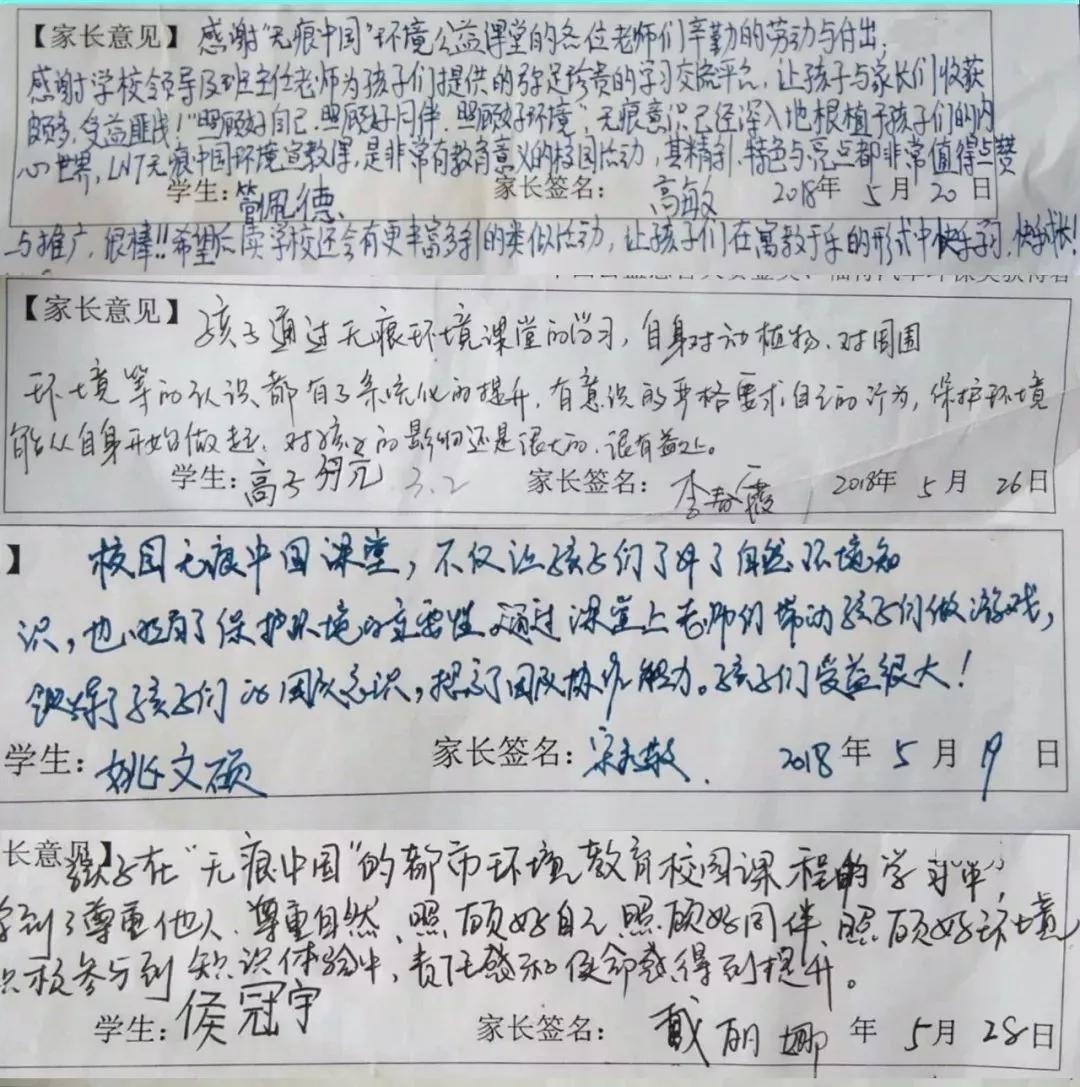 【家长意见】感谢“无痕中国”环境公益课堂的各位老师们辛勤的劳动与付出，
感谢学校领导及班主任老师为孩子们提供的弥足珍贵的学习交流平台，让孩子与家长们收获
颇多，受益匪浅！“照顾好自己、照顾好同伴、照顾好环境”，无痕意识已经深入地根植于孩子们的内
心世界，LNT无痕中国环境宣教课，是非常有教育意义的校园活动，其精彩、特色与亮点都非常值得点赞
学生： 家长签名：高敏 2018年 5月 20日
与推广，很棒!!希望后续学校还会有更丰富多彩的类似活动，让孩子们在寓教于乐的形式中快乐学习，快乐成长！
【家长意见】孩子通过无痕环境课堂的学习，自身对动植物、对周围
环境等的认识都有了系统化的提升，有意识的严格要求自己的行为，保护环境
能从自身开始做起，对孩子的影响还是很大的，很有益处。
学生：高子 3.2 家长签名：李春霞 2018年 5月 26日
】 校园无痕中国课堂，不仅让孩子们了解了自然环境知
识，也明白了保护环境的重要性，通过课堂上老师们带动孩子们做游戏，
锻炼了孩子们的团队意识，提高了团队协作能力。孩子们受益很大！
学生：姚文硕 家长签名：宋 敬 2018年 5月 19日
长意见】孩子在“无痕中国”的都市环境教育校园课程的学习中，
学到了尊重他人、尊重自然、照顾好自己、照顾好同伴、照顾好环境
积极参与到知识体验中，责任感和使命感得到提升。
学生：侯冠宇 家长签名：戴丽娜 年 5月 28日